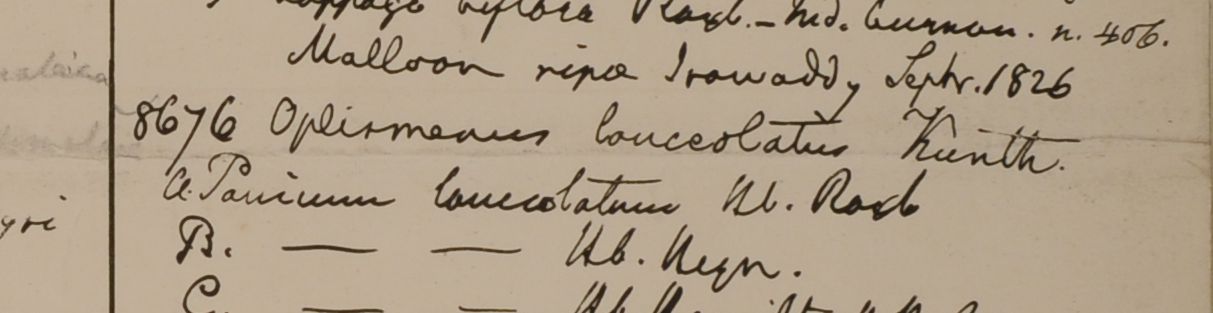 Roxb. – hd. Curnon. n. 406.
Malloon ripa Irawaddy Septr. 1826
8676 Oplismenus lanceolatus Kunth.
a. Panicum lanceolatum Hb. Roxb
B. — — Hb. Heyn.
C. — — Hb.
yri